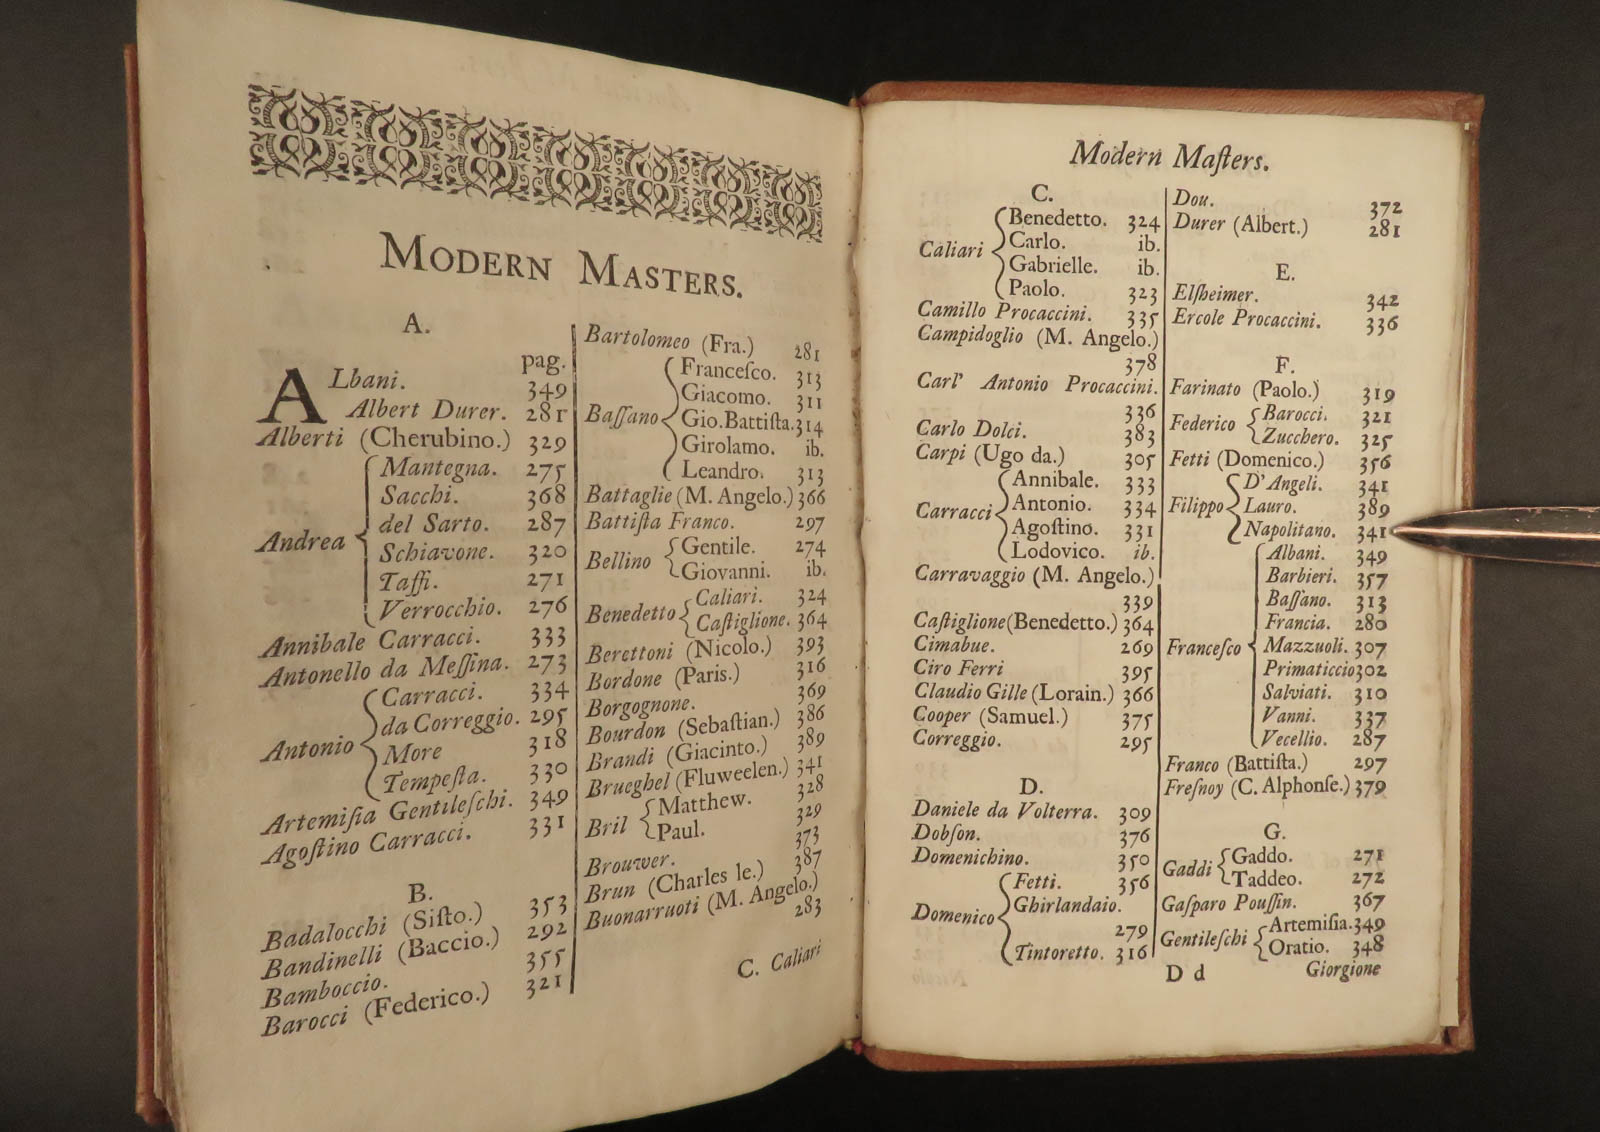 MODERN MASTERS.
A.
pag.
ALbani. 349
Albert Durer. 281
Alberti (Cherubino.) 329
Andrea
Mantegna. 275
Sacchi. 368
del Sarto. 287
Schiavone. 320
Taſſi. 271
Verrocchio. 276
Annibale Carracci. 333
Antonello da Meſſina. 273
Antonio
Carracci. 334
da Correggio. 295
More 318
Tempeſta. 330
Artemiſia Gentileſchi. 349
Agoſtino Carracci. 331
B.
Badalocchi (Siſto.) 353
Bandinelli (Baccio.) 292
Bamboccio. 355
Barocci (Federico.) 321
Bartolomeo (Fra.) 281
Baſſano
Franceſco. 313
Giacomo. 311
Gio.Battiſta. 314
Girolamo. ib.
Leandro. 313
Battaglie (M. Angelo.) 366
Battiſta Franco. 297
Bellino
Gentile. 274
Giovanni. ib.
Benedetto
Caliari. 324
Caſtiglione. 364
Berettoni (Nicolo.) 393
Bordone (Paris.) 316
Borgognone. 369
Bourdon (Sebaſtian.) 386
Brandi (Giacinto.) 389
Brueghel (Fluweelen.) 341
Bril
Matthew. 328
Paul. 329
Brouwer. 373
Brun (Charles le.) 387
Buonarruoti (M. Angelo.)
283
C. Caliari
Modern Maſters.
C.
Caliari
Benedetto. 324
Carlo. ib.
Gabrielle. ib.
Paolo. 323
Camillo Procaccini. 335
Campidoglio (M. Angelo.)
378
Carl' Antonio Procaccini.
336
Carlo Dolci. 383
Carpi (Ugo da.) 305
Carracci
Annibale. 333
Antonio. 334
Agoſtino. 331
Lodovico. ib.
Carravaggio (M. Angelo.)
339
Caſtiglione (Benedetto.) 364
Cimabue. 269
Ciro Ferri 395
Claudio Gille (Lorain.) 366
Cooper (Samuel.) 375
Correggio. 295
D.
Daniele da Volterra. 309
Dobſon. 376
Domenichino. 350
Domenico
Fetti. 356
Ghirlandaio.
279
Tintoretto. 316
Dou. 372
Durer (Albert.) 281
E.
Elſheimer. 342
Ercole Procaccini. 336
F.
Farinato (Paolo.) 319
Federico
Barocci. 321
Zucchero. 325
Fetti (Domenico.) 356
Filippo
D'Angeli. 341
Lauro. 389
Napolitano. 341
Franceſco
Albani. 349
Barbieri. 357
Baſſano. 313
Francia. 280
Mazzuoli. 307
Primaticcio 302
Salviati. 310
Vanni. 337
Vecellio. 287
Franco (Battiſta.) 297
Freſnoy (C. Alphonſe.) 379
G.
Gaddi
Gaddo. 271
Taddeo. 272
Gaſparo Pouſſin. 367
Gentileſchi
Artemiſia. 349
Oratio. 348
D d
Giorgione